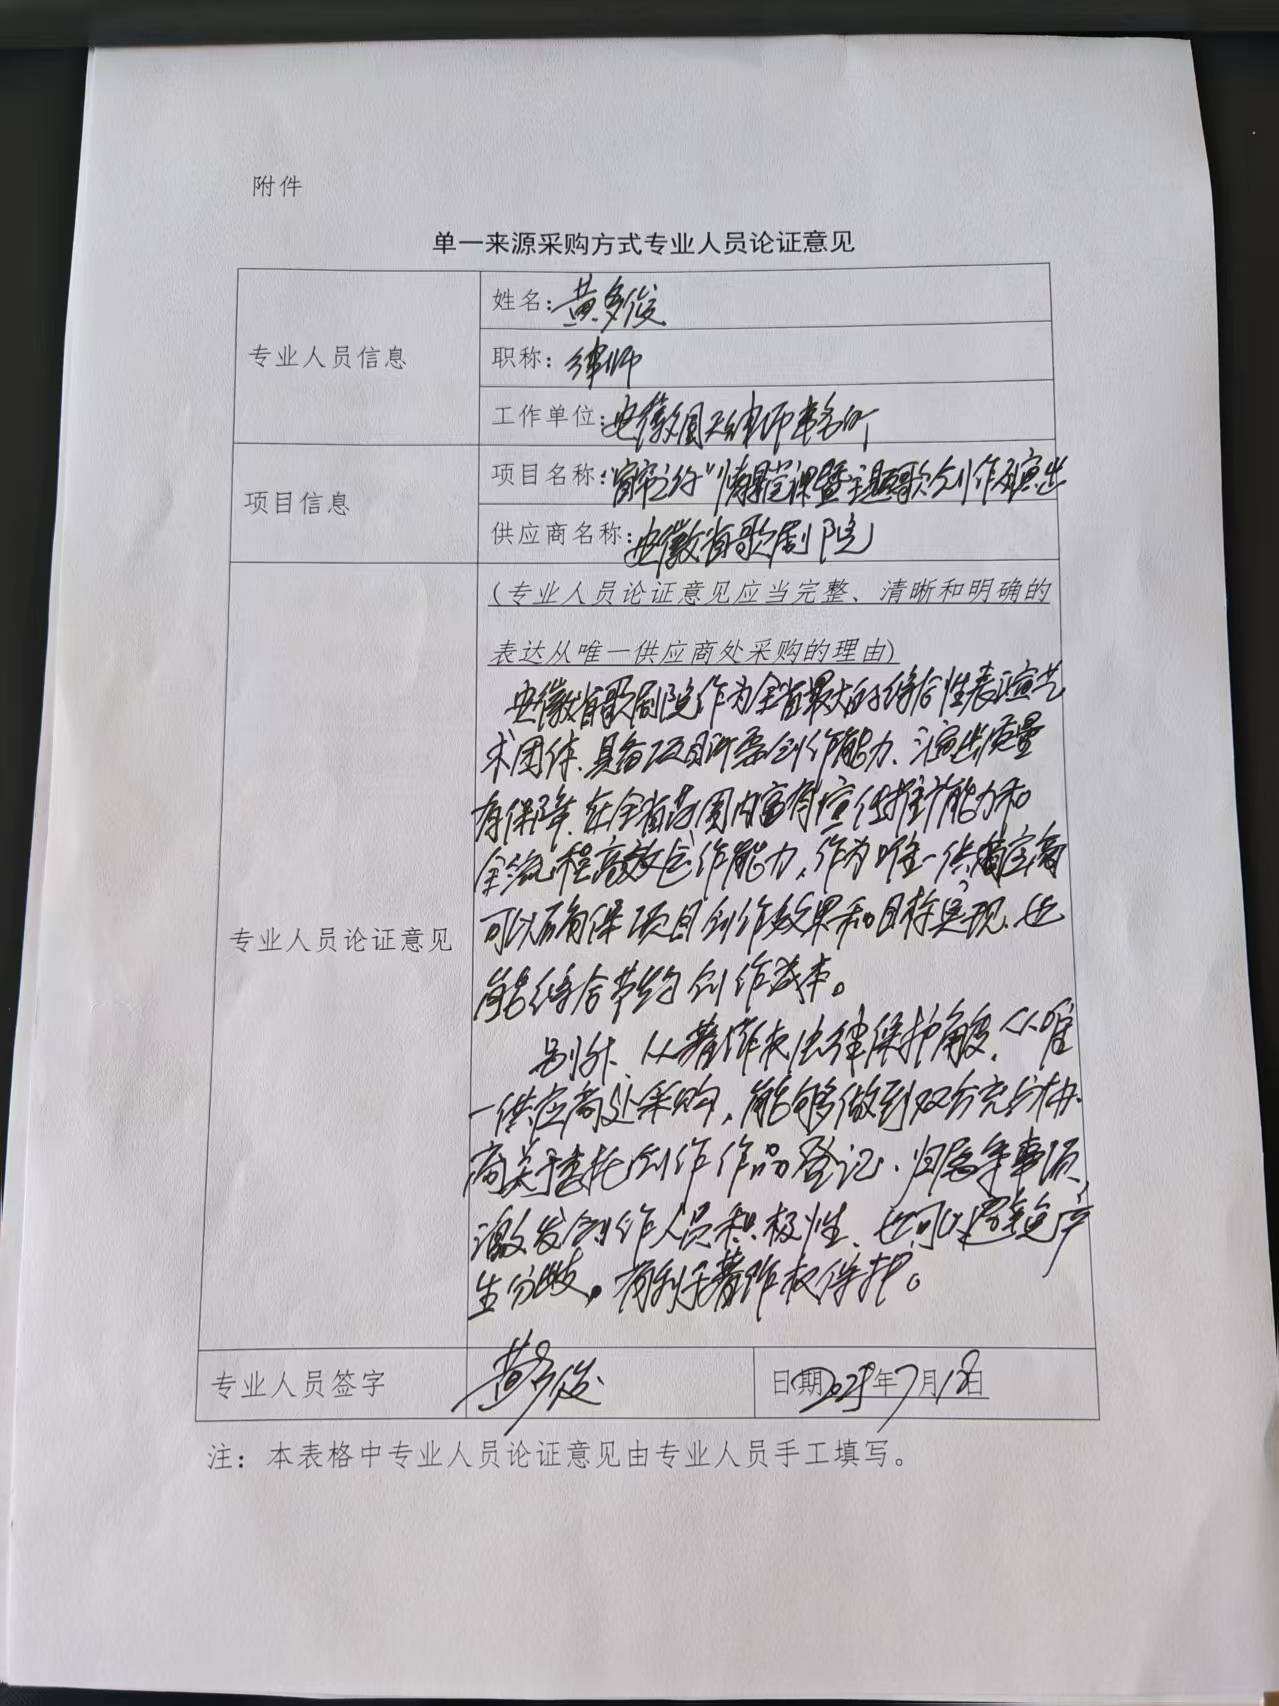 附件
单一来源采购方式专业人员论证意见
专业人员信息
姓名：黄多俊
职称：律师
工作单位：安徽国天律师事务所
项目信息
项目名称："窗帘之约"情景党课暨主题歌创作及演出
供应商名称：安徽省歌剧院
专业人员论证意见
(专业人员论证意见应当完整、清晰和明确的
表达从唯一供应商处采购的理由)
安徽省歌剧院作为全省最大的综合性表演艺
术团体、具备项目所需创作能力、演出质量
有保障、在全省范围内富有宣传推广能力和
全流程高效运作能力，作为唯一供应商
可以确保项目创作效果和目标实现、也
能综合节约创作成本。
另外、从著作权法律保护角度、从唯
一供应商处采购，能够做到双方充分协
商关于委托创作作品登记、归属等事项、
激发创作人员积极性、也可以避免产
生分歧。有利于著作权保护。
专业人员签字
黄多俊
日期2025年7月18日
注：本表格中专业人员论证意见由专业人员手工填写。